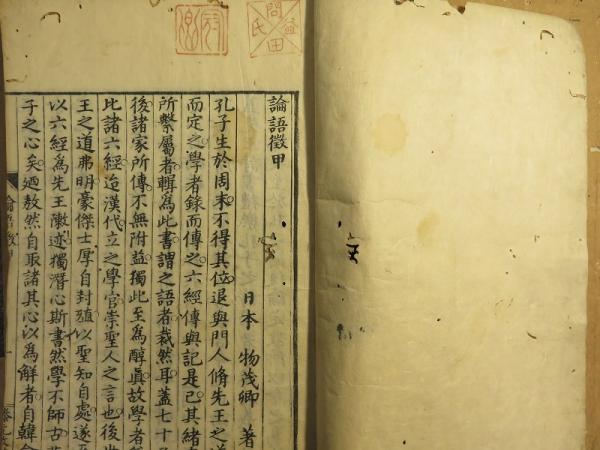 論語徵甲
日本 物茂卿 著
孔子生於周末不得其位退與門人脩先王之
而定之學者錄而傳之六經傳與記是已其緒
所繫屬者輯爲此書謂之語者裁然耳蓋七十
後諸家所傳不無附益獨此至爲醇眞故學者
比諸六經迨漢代立之學官崇聖人之言也後
王之道弗明豪傑士厚自封殖以聖知自處遂
以六經爲先王陳迹獨潛心斯書然學不師古
子之心矣廼敖然自取諸其心以爲解者自韓
論語徵甲